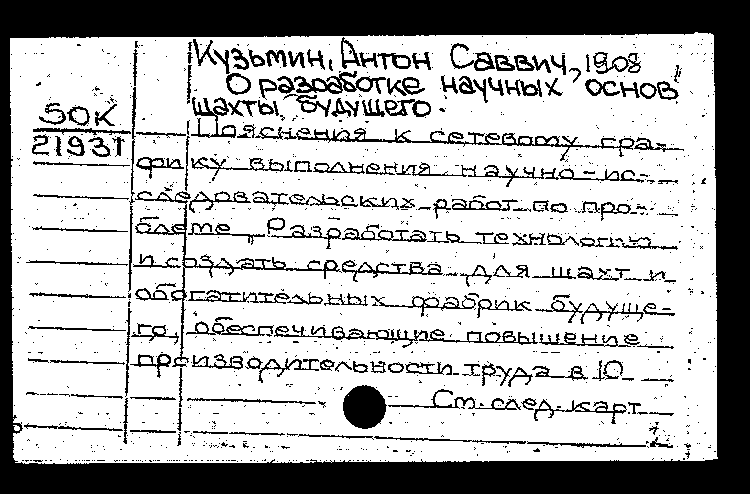 Кузьмин, Антон Саввич, 1908
О разработке научных основ
"шахты будущего".
50К
21931
Пояснения к сетевому гра-
фику выполнения научно-ис-
следовательских работ по про-
блеме „Разработать технологию
и создать средства для шахт и
обогатительных фабрик будуще-
го, обеспечивающие повышение
производительности труда в 10
См. след. карт